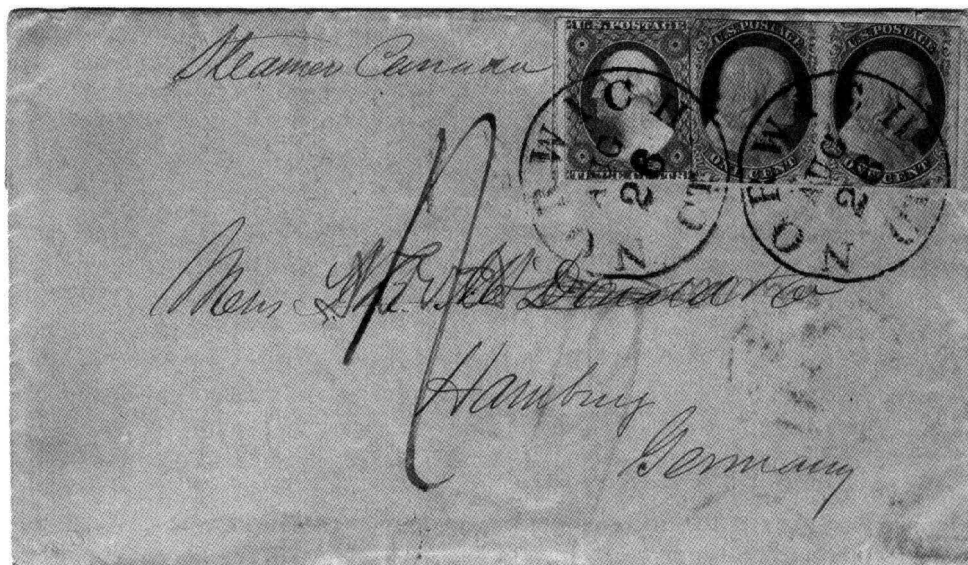 Steamer Canada
U.S.POSTAGE
U.S.POSTAGE
U.S.POSTAGE
THREE CENTS
ONE CENT
ONE CENT
NORWICH CT.
AUG
26
NORWICH CT.
AUG
26
Mess
Hamburg
Germany